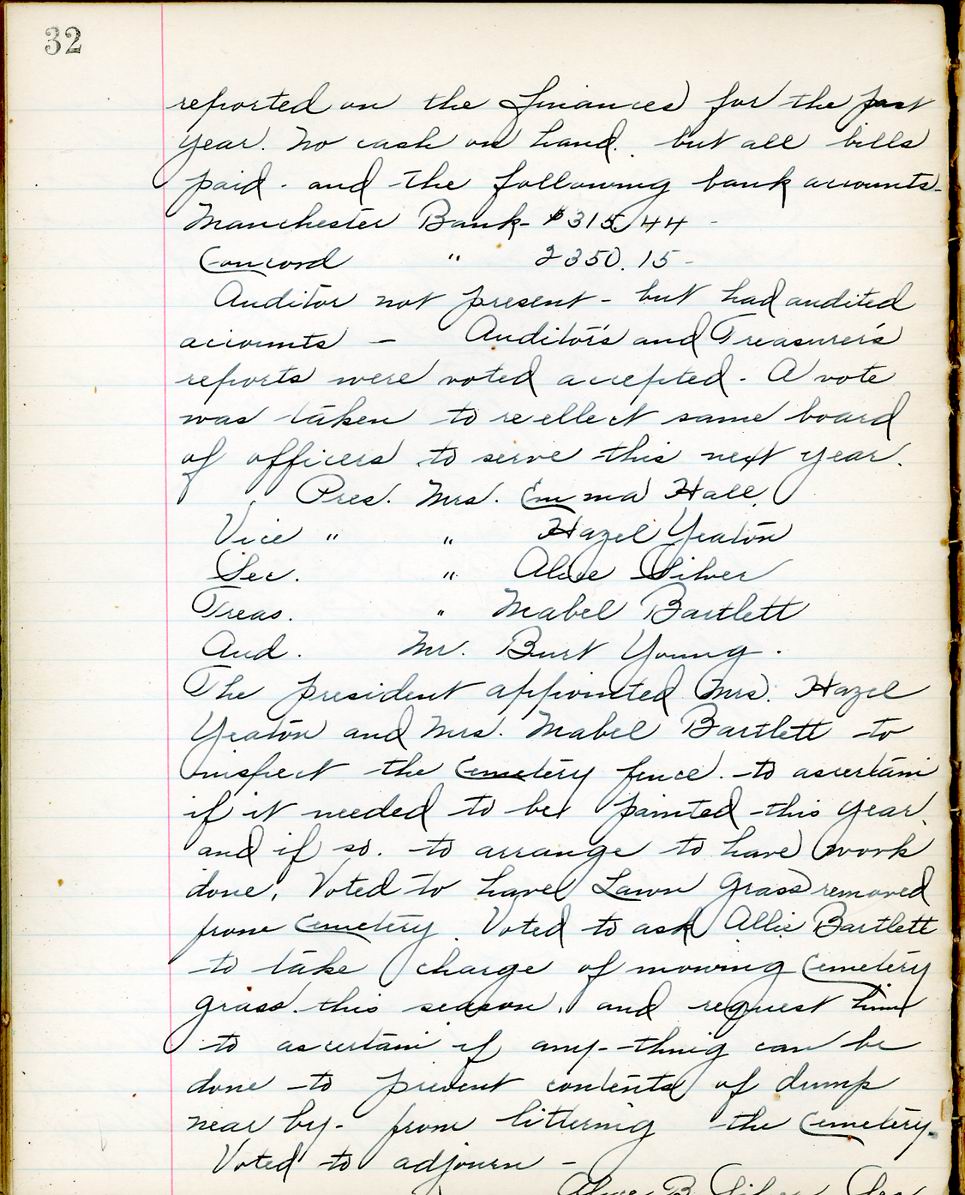 32
reported on the finances for the past
year. No cash on hand. but all bills
paid. and the following bank accounts-
Manchester Bank- $315.44 -
Concord " 2350.15 -
Auditor not present - but had audited
accounts - Auditor's and Treasurer's
reports were voted accepted. A vote
was taken to reellect same board
of officers to serve this next year.
Pres. Mrs. Emma Hall
Vice " " Hazel Yeaton
Sec. " Alice Silver
Treas. " Mabel Bartlett
Aud. Mr. Burt Young.
The president appointed Mrs. Hazel
Yeaton and Mrs. Mabel Bartlett to
inspect the Cemetery fence. to ascertain
if it needed to be painted this year.
and if so. to arrange to have work
done. Voted to have Lawn grass removed
from Cemetery. Voted to ask Allie Bartlett
to take charge of mowing Cemetery
grass this season, and request him
to ascertain if any-thing can be
done to prevent contents of dump
near by- from littering the Cemetery.
Voted to adjourn -
Alice B. Silver Sec